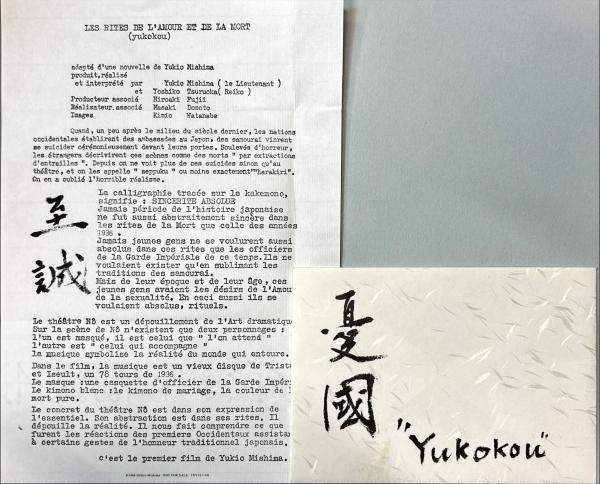 LES RITES DE L'AMOUR ET DE LA MORT
(yukokou)
adapté d'une nouvelle de Yukio Mishima
produit,réalisé
et interprété par Yukio Mishima ( le Lieutenant )
et Yoshiko Tsuruoka ( Reiko )
Producteur associé Hiroaki Fujii
Réalisateur.associé Masaki Domoto
Images Kimio Watanabe
Quand, un peu après le milieu du siècle dernier, les nations
occidentales établirent des ambassades au Japon, des samourai vinrent
se suicider cérémonieusement devant leurs portes. Soulevés d'horreur,
les étrangers décrivirent ces scènes comme des morts " par extractions
d'entrailles ". Depuis on ne voit plus de ces suicides sinon qu'au
théâtre, et on les appelle " seppuku " ou moins exactement""harakiri".
On en a oublié l'horrible réalisme.
至誠
La calligraphie tracée sur le kakemono,
signifie : SINCERITE ABSOLUE
Jamais période de l'histoire japonaise
ne fut aussi abstraitement sincère dans
les rites de la Mort que celle des années
1936 .
Jamais jeunes gens ne se voulurent aussi
absolus dans ces rites que les officiers
de la Garde Impériale de ce temps.Ils ne
voulaient exister qu'en sublimant les
traditions des samourai.
Mais de leur époque et de leur âge , ces
jeunes gens avaient les désirs de l'Amour
de la sexualité. En ceci aussi ils se
voulaient absolus, rituels.
Le théâtre Nô est un dépouillement de l'Art dramatique
Sur la scène de Nô n'existent que deux personnages :
l'un est masqué, il est celui que " l'on attend "
l'autre est " celui qui accompagne "
la musique symbolise la réalité du monde qui entoure.
Dans le film, la musique est un vieux disque de Trista
et Iseult, un 78 tours de 1936 .
Le masque :une casquette d'officier de la Garde Impéri
Le kimono blanc :le kimono de mariage, la couleur de l
mort pure.
Le concret du théâtre Nô est dans son expression de
l'essentiel. Son abstraction est dans ses rites. Il
dépouille la réalité. Il nous fait comprendre ce que
furent les réactions des premiers Occidentaux assista
à certains gestes de l'honneur traditionnel japonais.
c'est le premier film de Yukio Mishima.
憂國
"Yukokou"